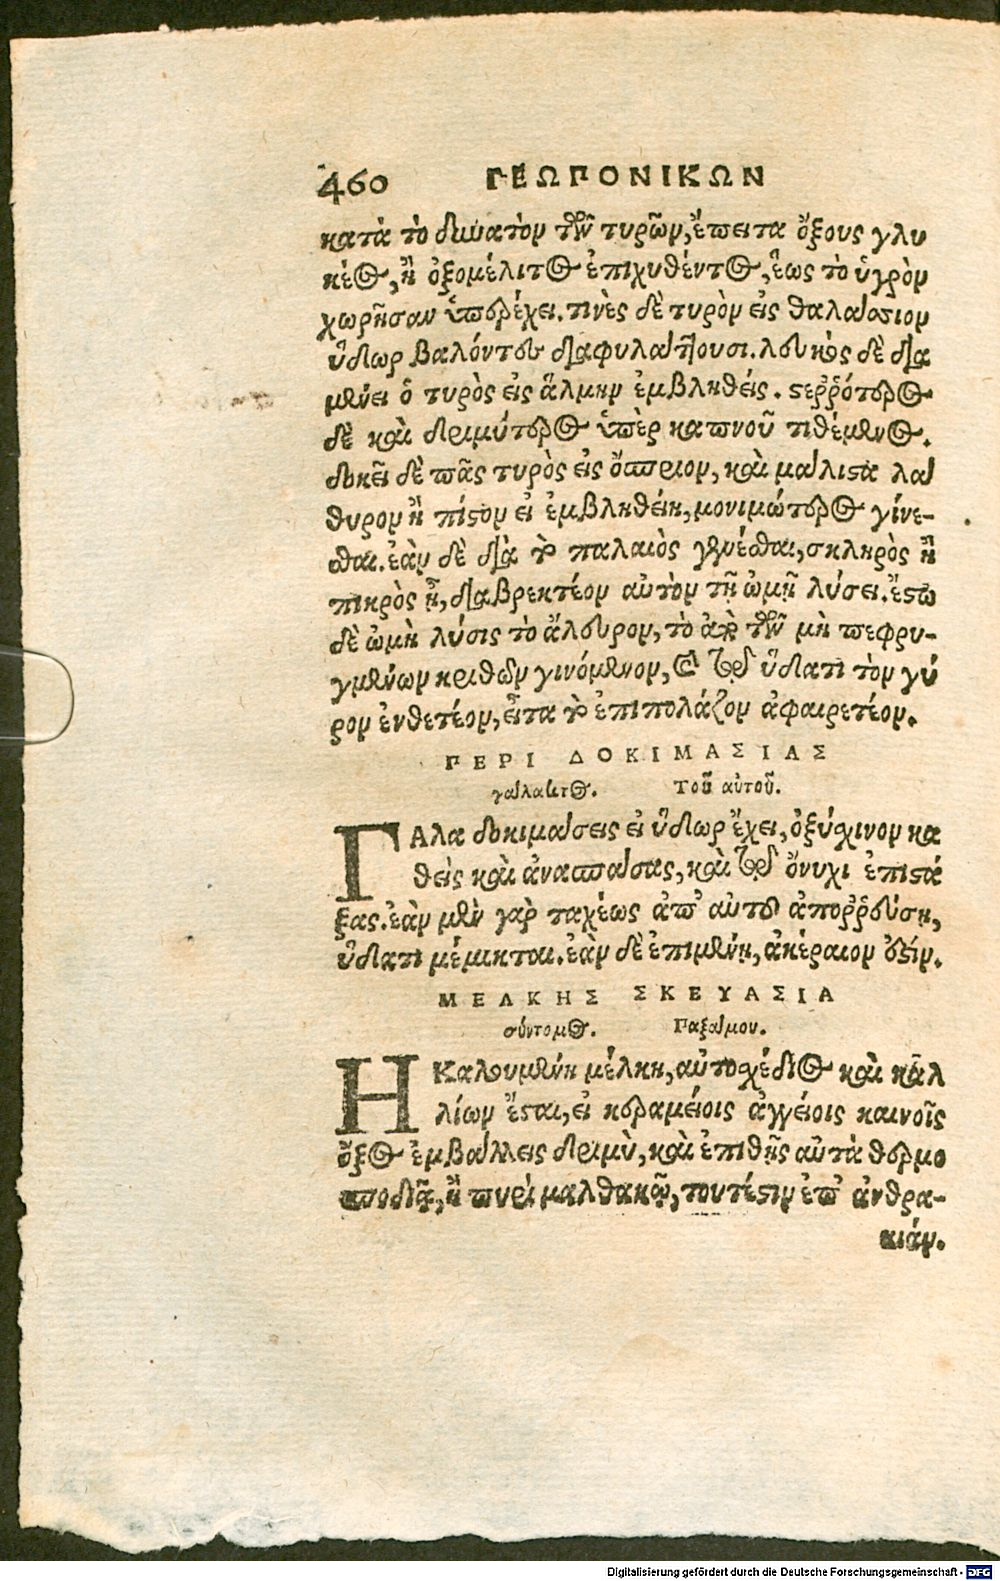 460 ΓΕΩΠΟΝΙΚΩΝ
κατὰ τὸ δυνατὸν τῶν τυρῶν, ἔπειτα ὄξους γλυ
κέος, ἢ ὀξομέλιτος ἐπιχυθέντος, ἕως τὸ ὑγρὸν
χωρῆσαν ὑπερέχει. τινὲς δὲ τυρὸν εἰς θαλάσσιον
ὕδωρ βαλόντες διαφυλάττουσι. λευκὸς δὲ δια
μένει ὁ τυρὸς εἰς ἅλμην ἐμβληθείς. στεῤῥότερος
δὲ καὶ δριμύτερος ὑπὲρ καπνοῦ τιθέμενος.
δοκεῖ δὲ πᾶς τυρὸς εἰς ὄσπριον, καὶ μάλιστα λά
θυρον ἢ πίστον εἰ ἐμβληθείη, μονιμώτερος γίνε-
σθαι. ἐὰν δὲ διὰ τὸ παλαιὸς γενέσθαι, σκληρὸς ἢ
πικρὸς ᾖ, διαβρεκτέον αὐτὸν τῇ ὠμῇ λύσει. ἔστω
δὲ ὠμὴ λύσις τὸ ἄλευρον, τὸ ἀπὸ τῶν μὴ πεφρυ-
γμένων κριθῶν γινόμενον, καὶ τῷ ὕδατι τὸν γύ
ρον ἐνθετέον, εἶτα τὸ ἐπιπολάζον ἀφαιρετέον.
ΠΕΡΙ ΔΟΚΙΜΑΣΙΑΣ
γάλακτος. Τοῦ αὐτοῦ.
ΓΑλα δοκιμάσεις εἰ ὕδωρ ἔχει, ὀξύσχινον κα
θεὶς καὶ ἀνασπάσας, καὶ τῷ ὄνυχι ἐπιστά
ξας. ἐὰν μὲν γὰρ ταχέως ἀπ᾽ αὐτοῦ ἀποῤῥεύσῃ,
ὕδατι μέμικται. ἐὰν δὲ ἐπιμένῃ, ἀκέραιον ἐστίν.
ΜΕΛΚΗΣ ΣΚΕΥΑΣΙΑ
σύντομος. Παξάμου.
Η Καλουμένη μέλκη, αὐτοσχέδιος καὶ κάλ
λίων ἔσται, εἰ κεραμείοις ἀγγείοις καινοῖς
ὄξος ἐμβάλλεις δριμὺ, καὶ ἐπιθῇς αὐτὰ θερμο
σποδιᾷ, ἢ πυρὶ μαλθακῷ, τουτέστιν ἐπ᾽ ἀνθρα-
κιάν.
Digitalisierung gefördert durch die Deutsche Forschungsgemeinschaft - DFG